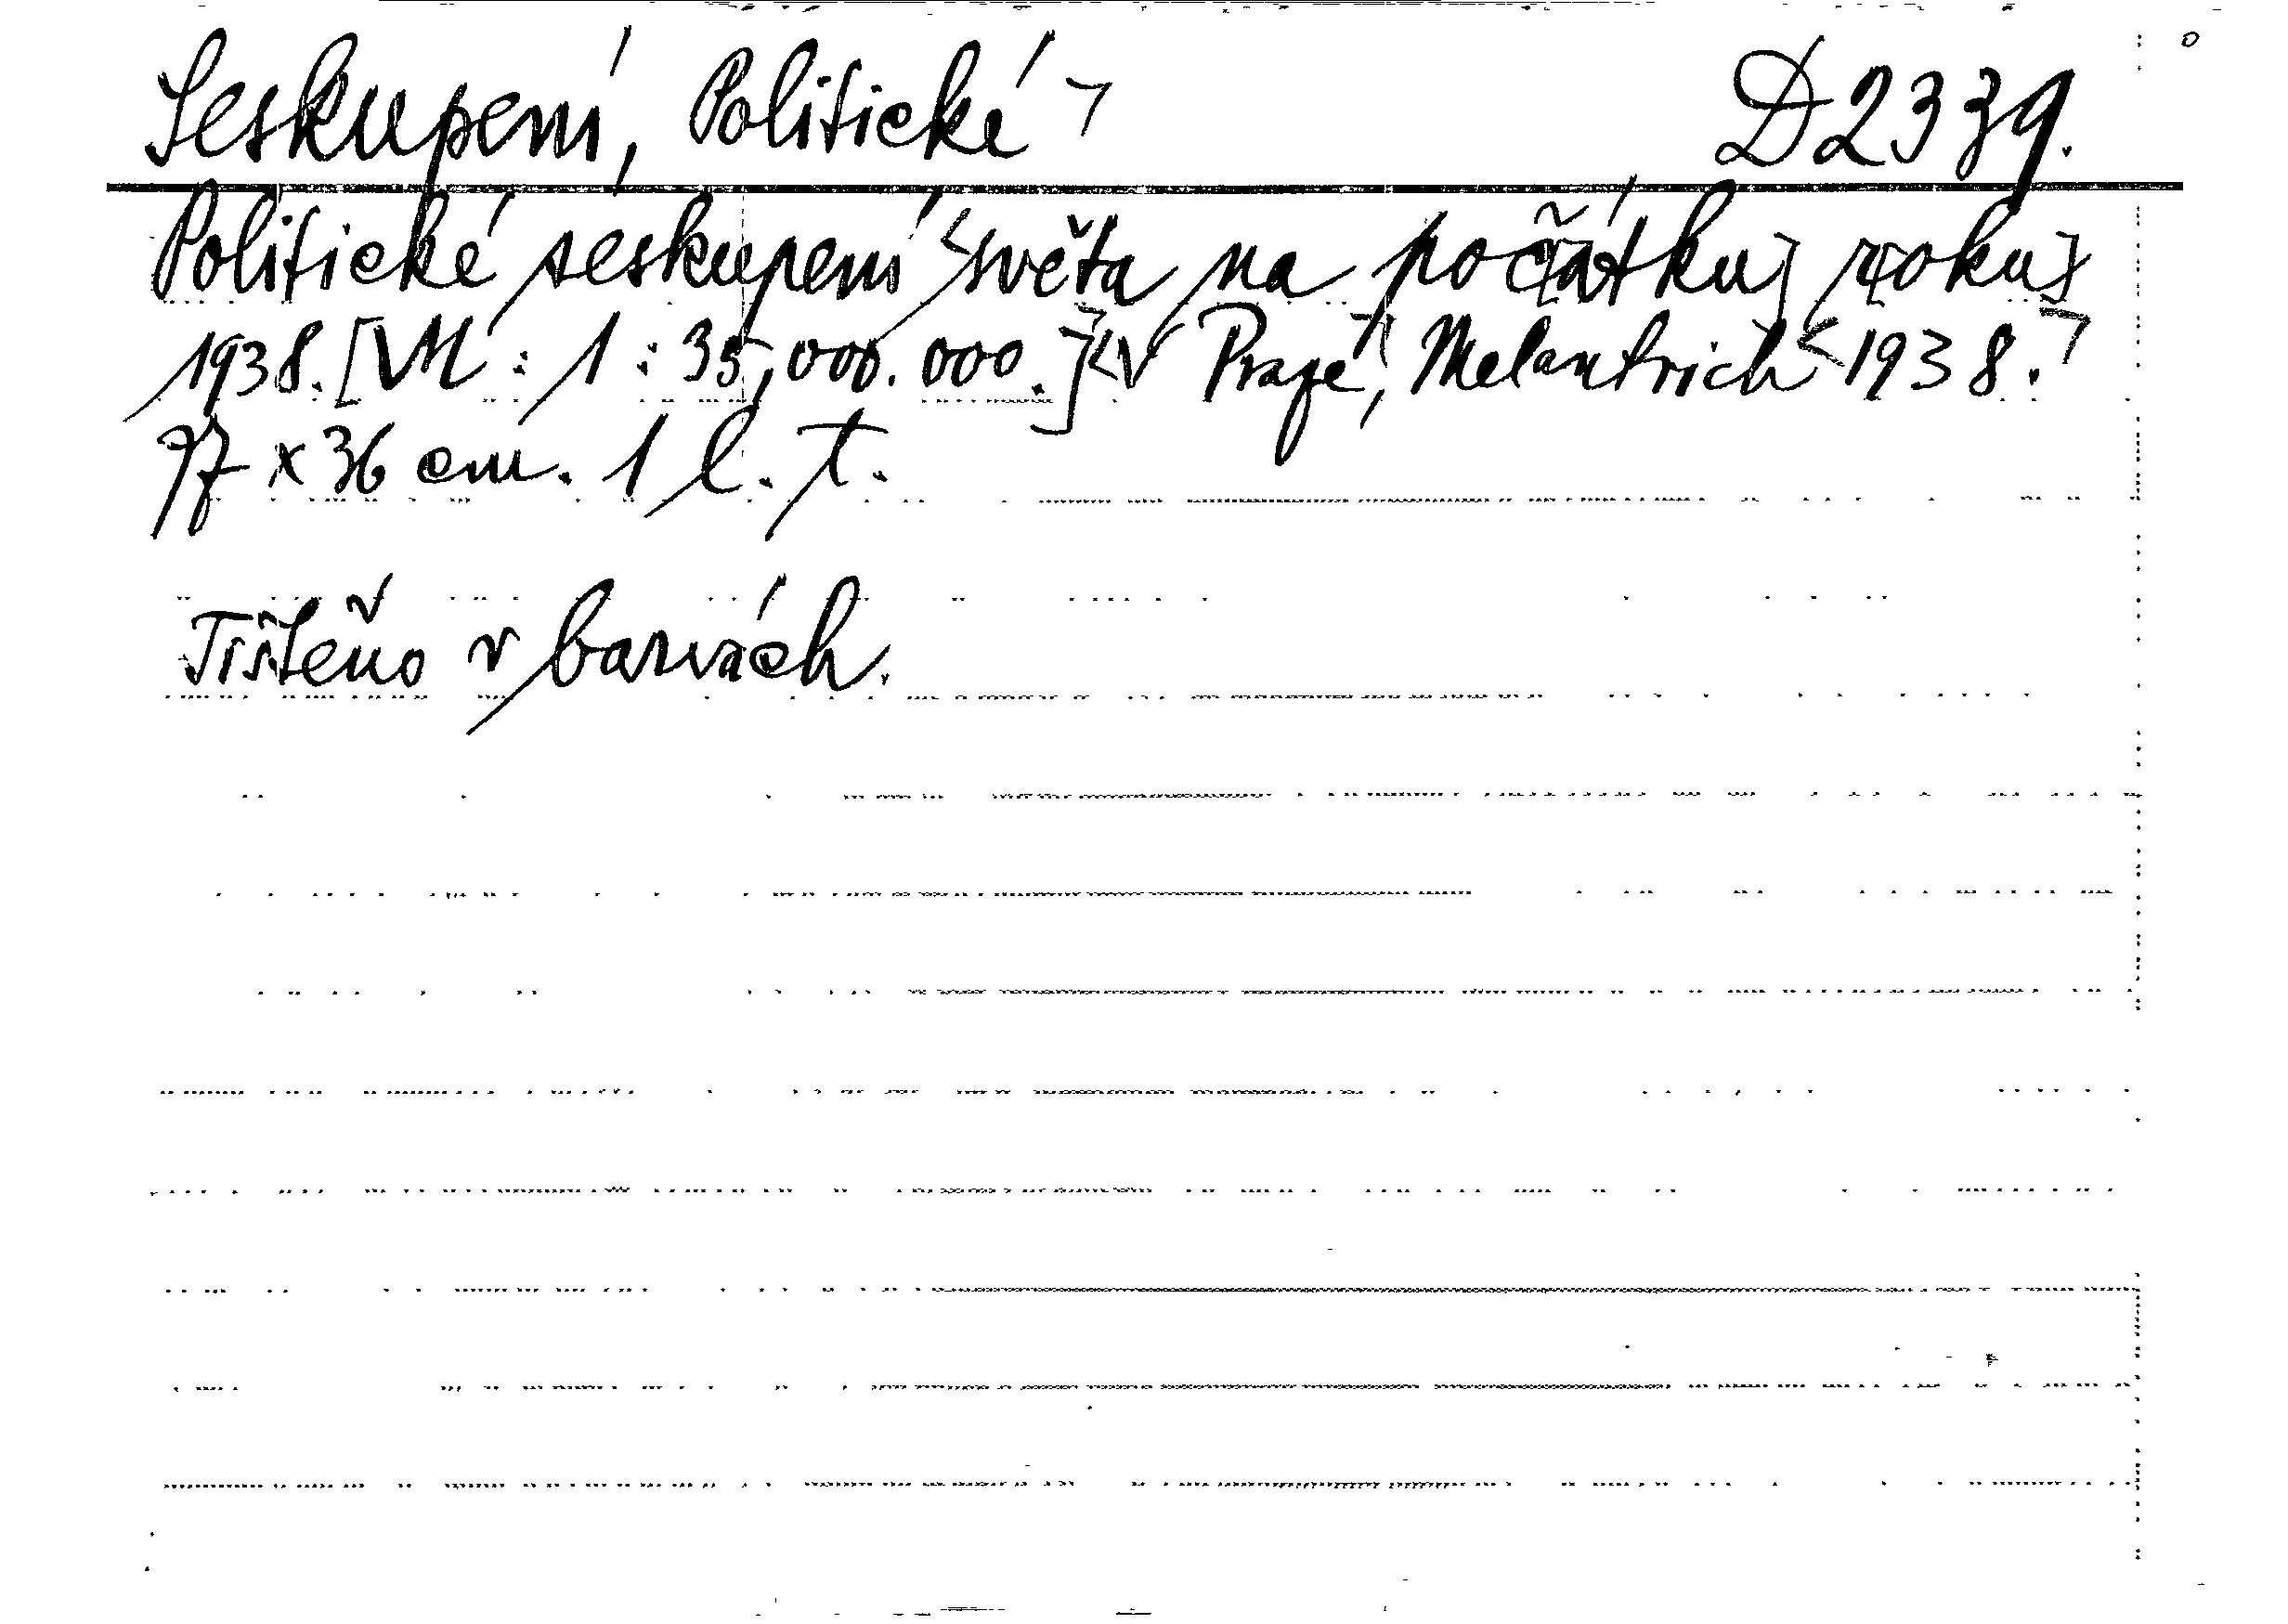 Seskupení, Politické ¬ D 2339.
Politické seskupení <světa na poč[átku] r[oku]
1938. [M : 1 : 35,000.000.] <V Praze ¬, Melantrich < 1938. ¬
77 x 36 cm. 1 l. t.
Tištěno v barvách.